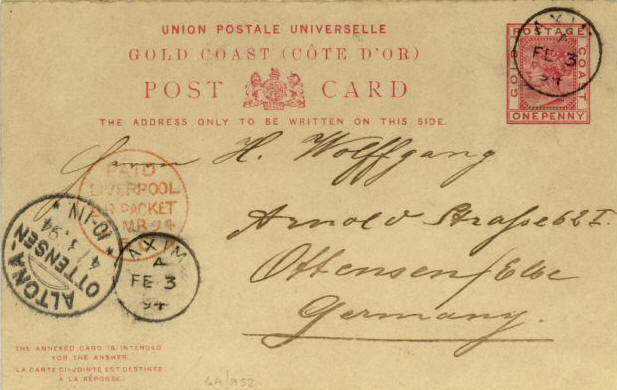 UNION POSTALE UNIVERSELLE
GOLD COAST (CÔTE D'OR)
POST CARD
THE ADDRESS ONLY TO BE WRITTEN ON THIS SIDE.
POSTAGE
GOLD COAST
ONE PENNY
AXIM
A
FE 3
94
Herrn H. Wolffgang
Arnold Straße 62 I.
Ottensen/Elbe
Germany.
PAID
LIVERPOOL
BR PACKET
MR 94
ALTONA-
OTTENSEN
4/3.94
10-11N
AXIM
A
FE 3
94
THE ANNEXED CARD IS INTENDED
FOR THE ANSWER.
LA CARTE CI-JOINTE EST DESTINÉE
À LA RÉPONSE.